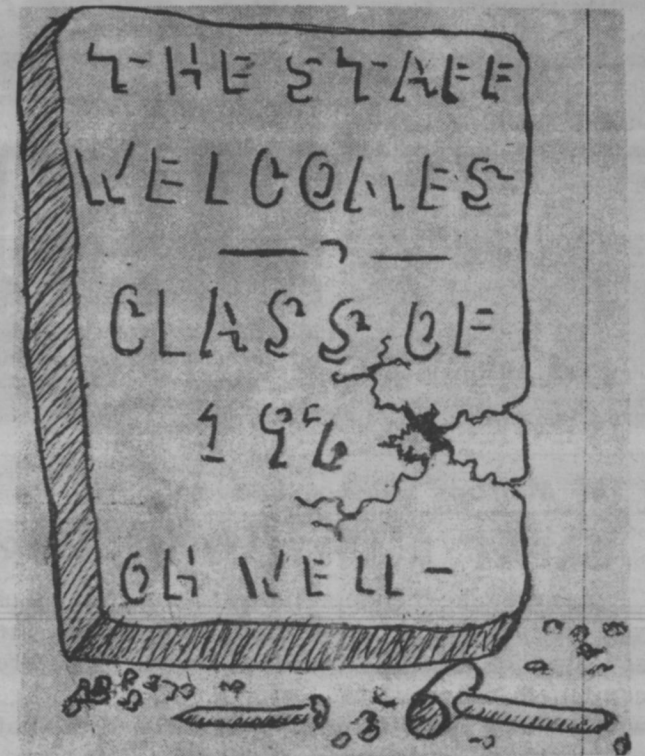 THE STAFF
WELCOMES
CLASS OF
196
OH WELL -